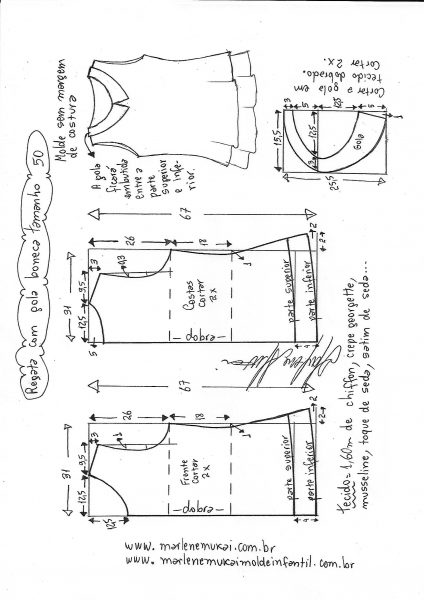 Regata com gola boneca tamanho 50
Molde sem margem
de costura
A gola
ficará
embutida
entre a
parte
superior
e infe-
rior.
Cortar a gola em
tecido dobrado.
Cortar 2x.
3
5
5
1
15,5
12,5
3
Gola
25,5
67
26
18
3
9,5
12,5
31
5
0,3
1
2
2
4
Costas
cortar
2x
dobra
parte superior
parte inferior
67
26
18
3
9,5
12,5
31
12,5
1
1
2
2
4
Frente
cortar
2x
dobra
parte superior
parte inferior
tecido = 1,60m de chiffon, crepe georgette,
musseline, toque de seda, satim de seda...
www.marlenemukai.com.br
www.marlenemukaimoldeinfantil.com.br